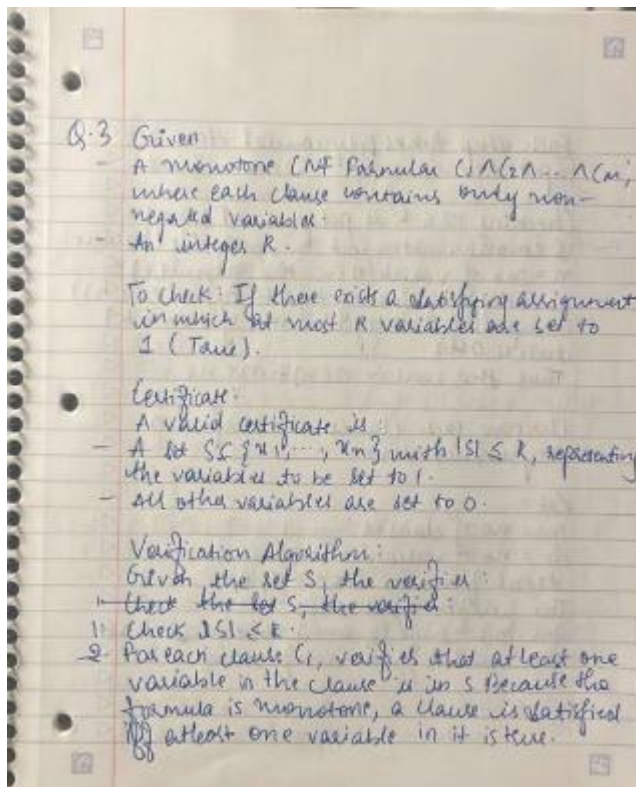 Q.3 Given
- A monotone CNF Formular C1∧C2∧...∧Cm,
where each clause contains only non-
negated variables.
- An integer K.
To check: If there exists a satisfying assignment
in which at most K variables are set to
1 (True).
Certificate:
A valid certificate is:
- A set S⊆{x1,..., xn} with |S| ≤ K, representing
the variables to be set to 1.
- All other variables are set to 0.
Verification Algorithm:
Given the set S, the verifier:
1. Check the set S, the verifier:
1. Check |S| ≤ K.
2. For each clause Ci, verifies that atleast one
variable in the clause is in S Because the
formula is monotone, a clause is satisfied
iff atleast one variable in it is true.